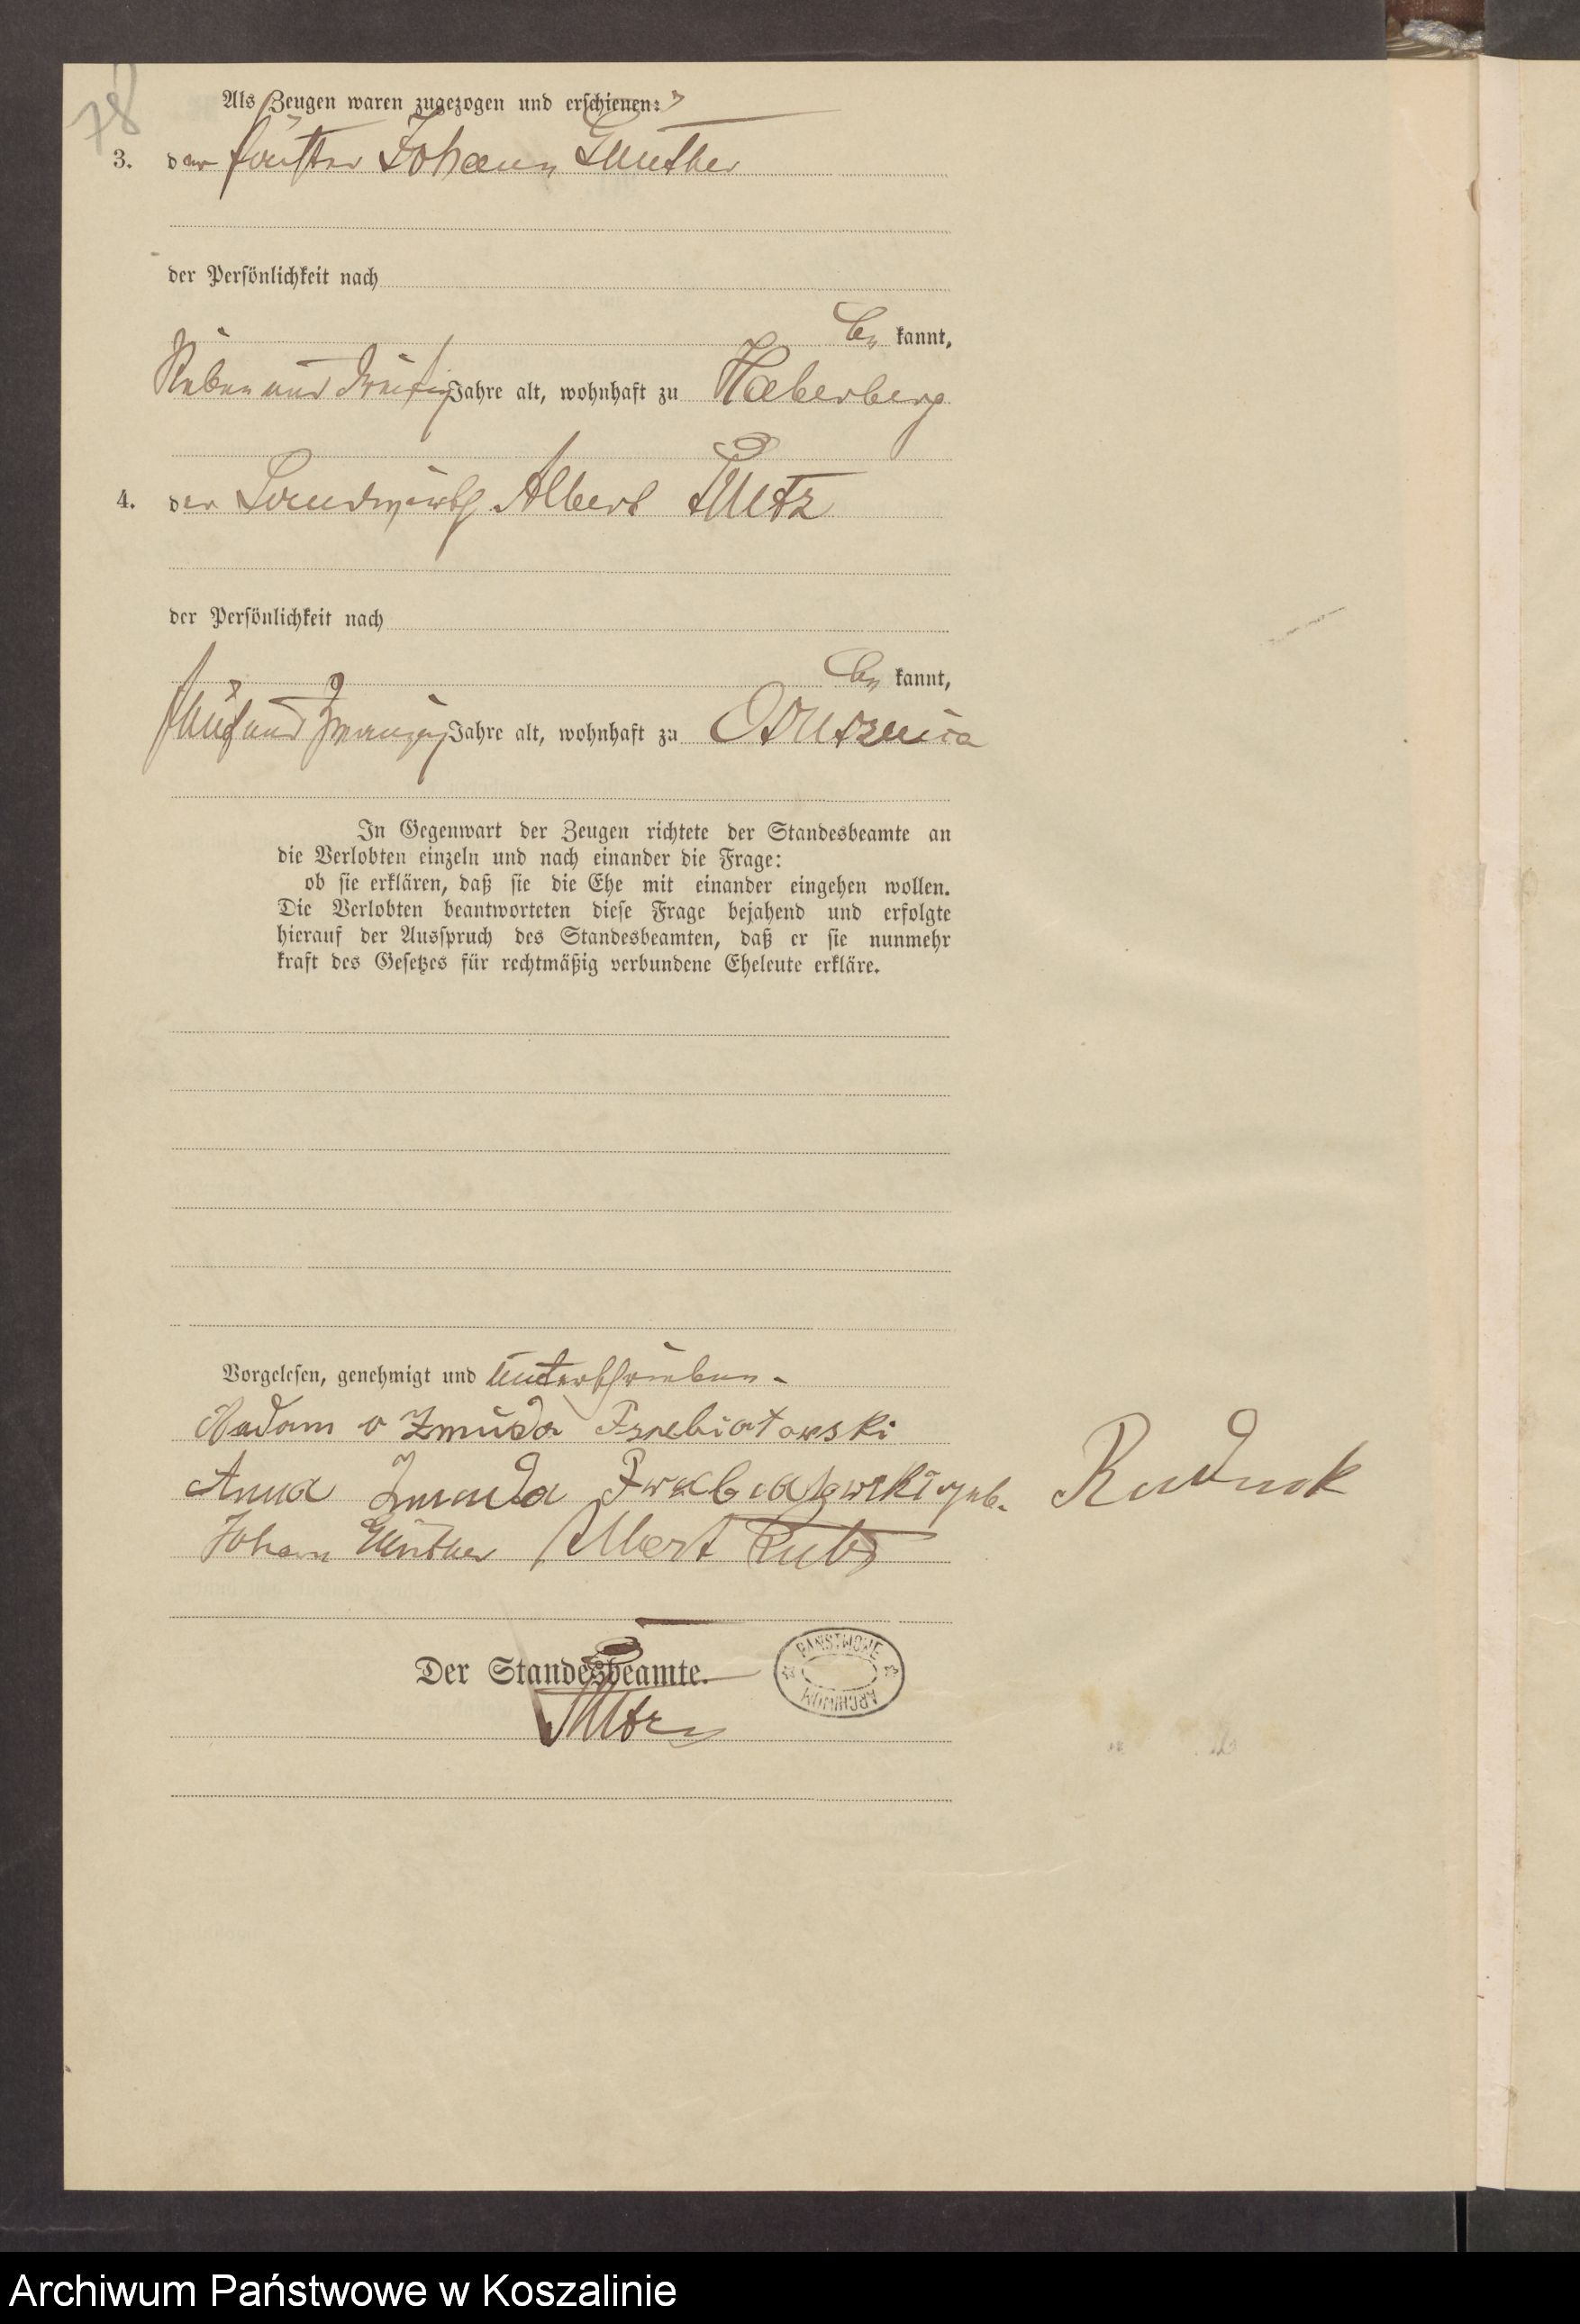 78
Als Zeugen waren zugezogen und erschienen:
3. der Förster Johann Günther
der Persönlichkeit nach
be kannt,
Sieben und dreißig Jahre alt, wohnhaft zu Haberberg
4. der Landwirth Albert Kutz
der Persönlichkeit nach
be kannt,
fünf und zwanzig Jahre alt, wohnhaft zu Ostrusznica
In Gegenwart der Zeugen richtete der Standesbeamte an
die Verlobten einzeln und nach einander die Frage:
ob sie erklären, daß sie die Ehe mit einander eingehen wollen.
Die Verlobten beantworteten diese Frage bejahend und erfolgte
hierauf der Ausspruch des Standesbeamten, daß er sie nunmehr
kraft des Gesetzes für rechtmäßig verbundene Eheleute erkläre.
Vorgelesen, genehmigt und unterschrieben.
v Zmuda Trzebiatowski
Anna Zmuda geb. Rudnik
Johann Günther Albert Kutz
Der Standesbeamte.
Kutz
PAŃSTWOWE
ARCHIWUM
Archiwum Państwowe w Koszalinie